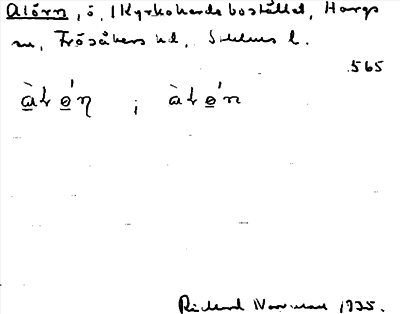 Alörn, ö, /Kyrkoherdebostället, Hargs
sn, Frösåkers hd, Sthlms l.
565
àLǿŋ ; àLǿn
Richard Norrman 1935.